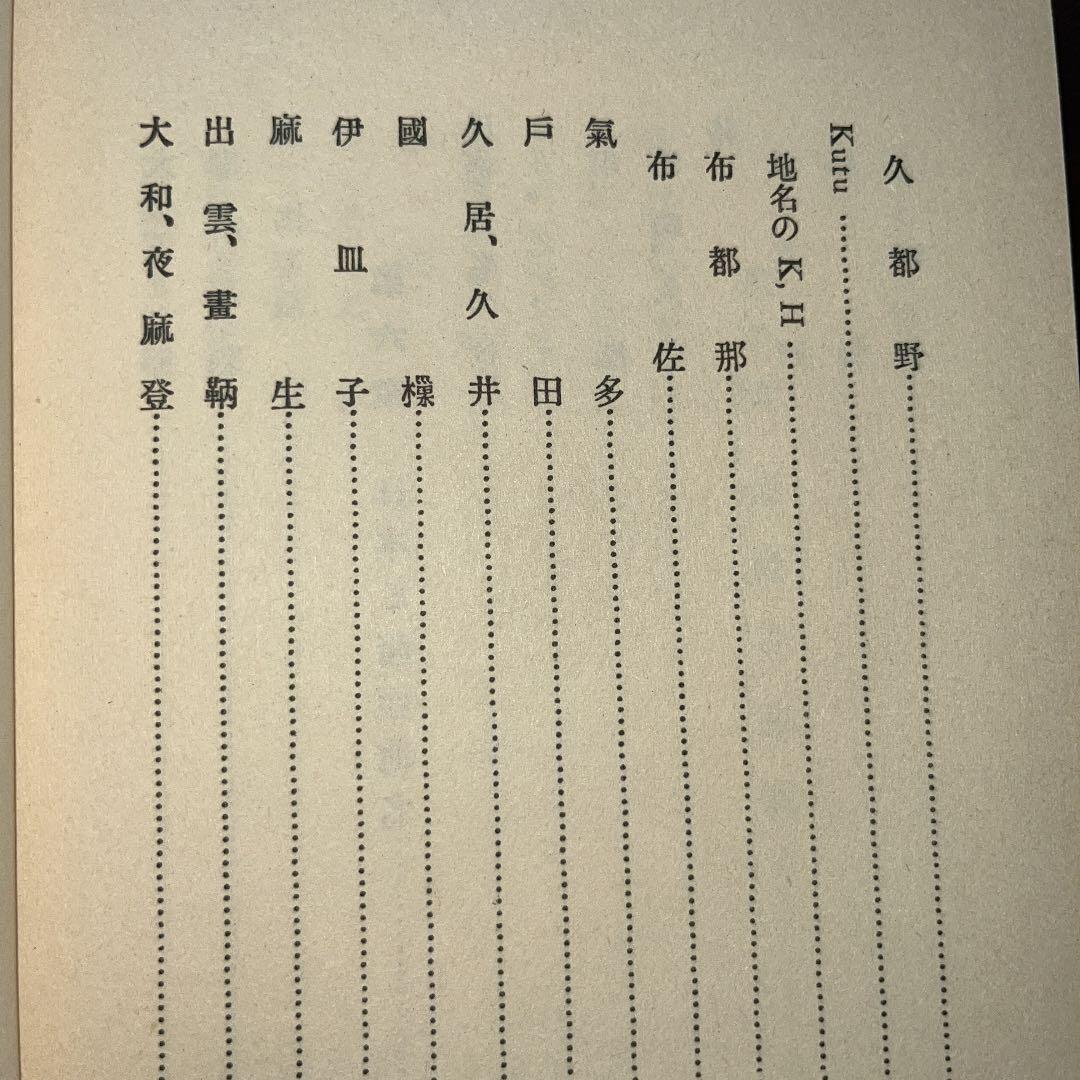 久都野
Kutu
地名のK, H
布都那
布佐
氣多
戶田
久居、久井
國樔
伊皿子
麻生
出雲、畫鞆
大和、夜麻登